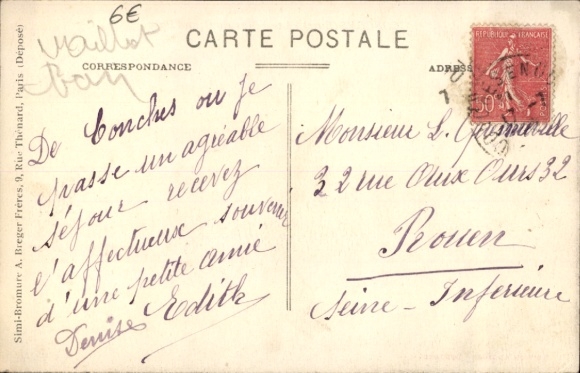 6€
Maillot
CARTE POSTALE
CORRESPONDANCE
ADRESSE
RÉPUBLIQUE FRANÇAISE
Simi-Bromure A. Breger Frères, 9, Rue Thénard, Paris (Déposé)
De Conches ou je
passe un agréable
séjour recevez
l'affectueux souvenir
d'une petite amie
Denise Edith
Monsieur L.
32 rue Aux Ours 32
Rouen
Seine-Inférieure